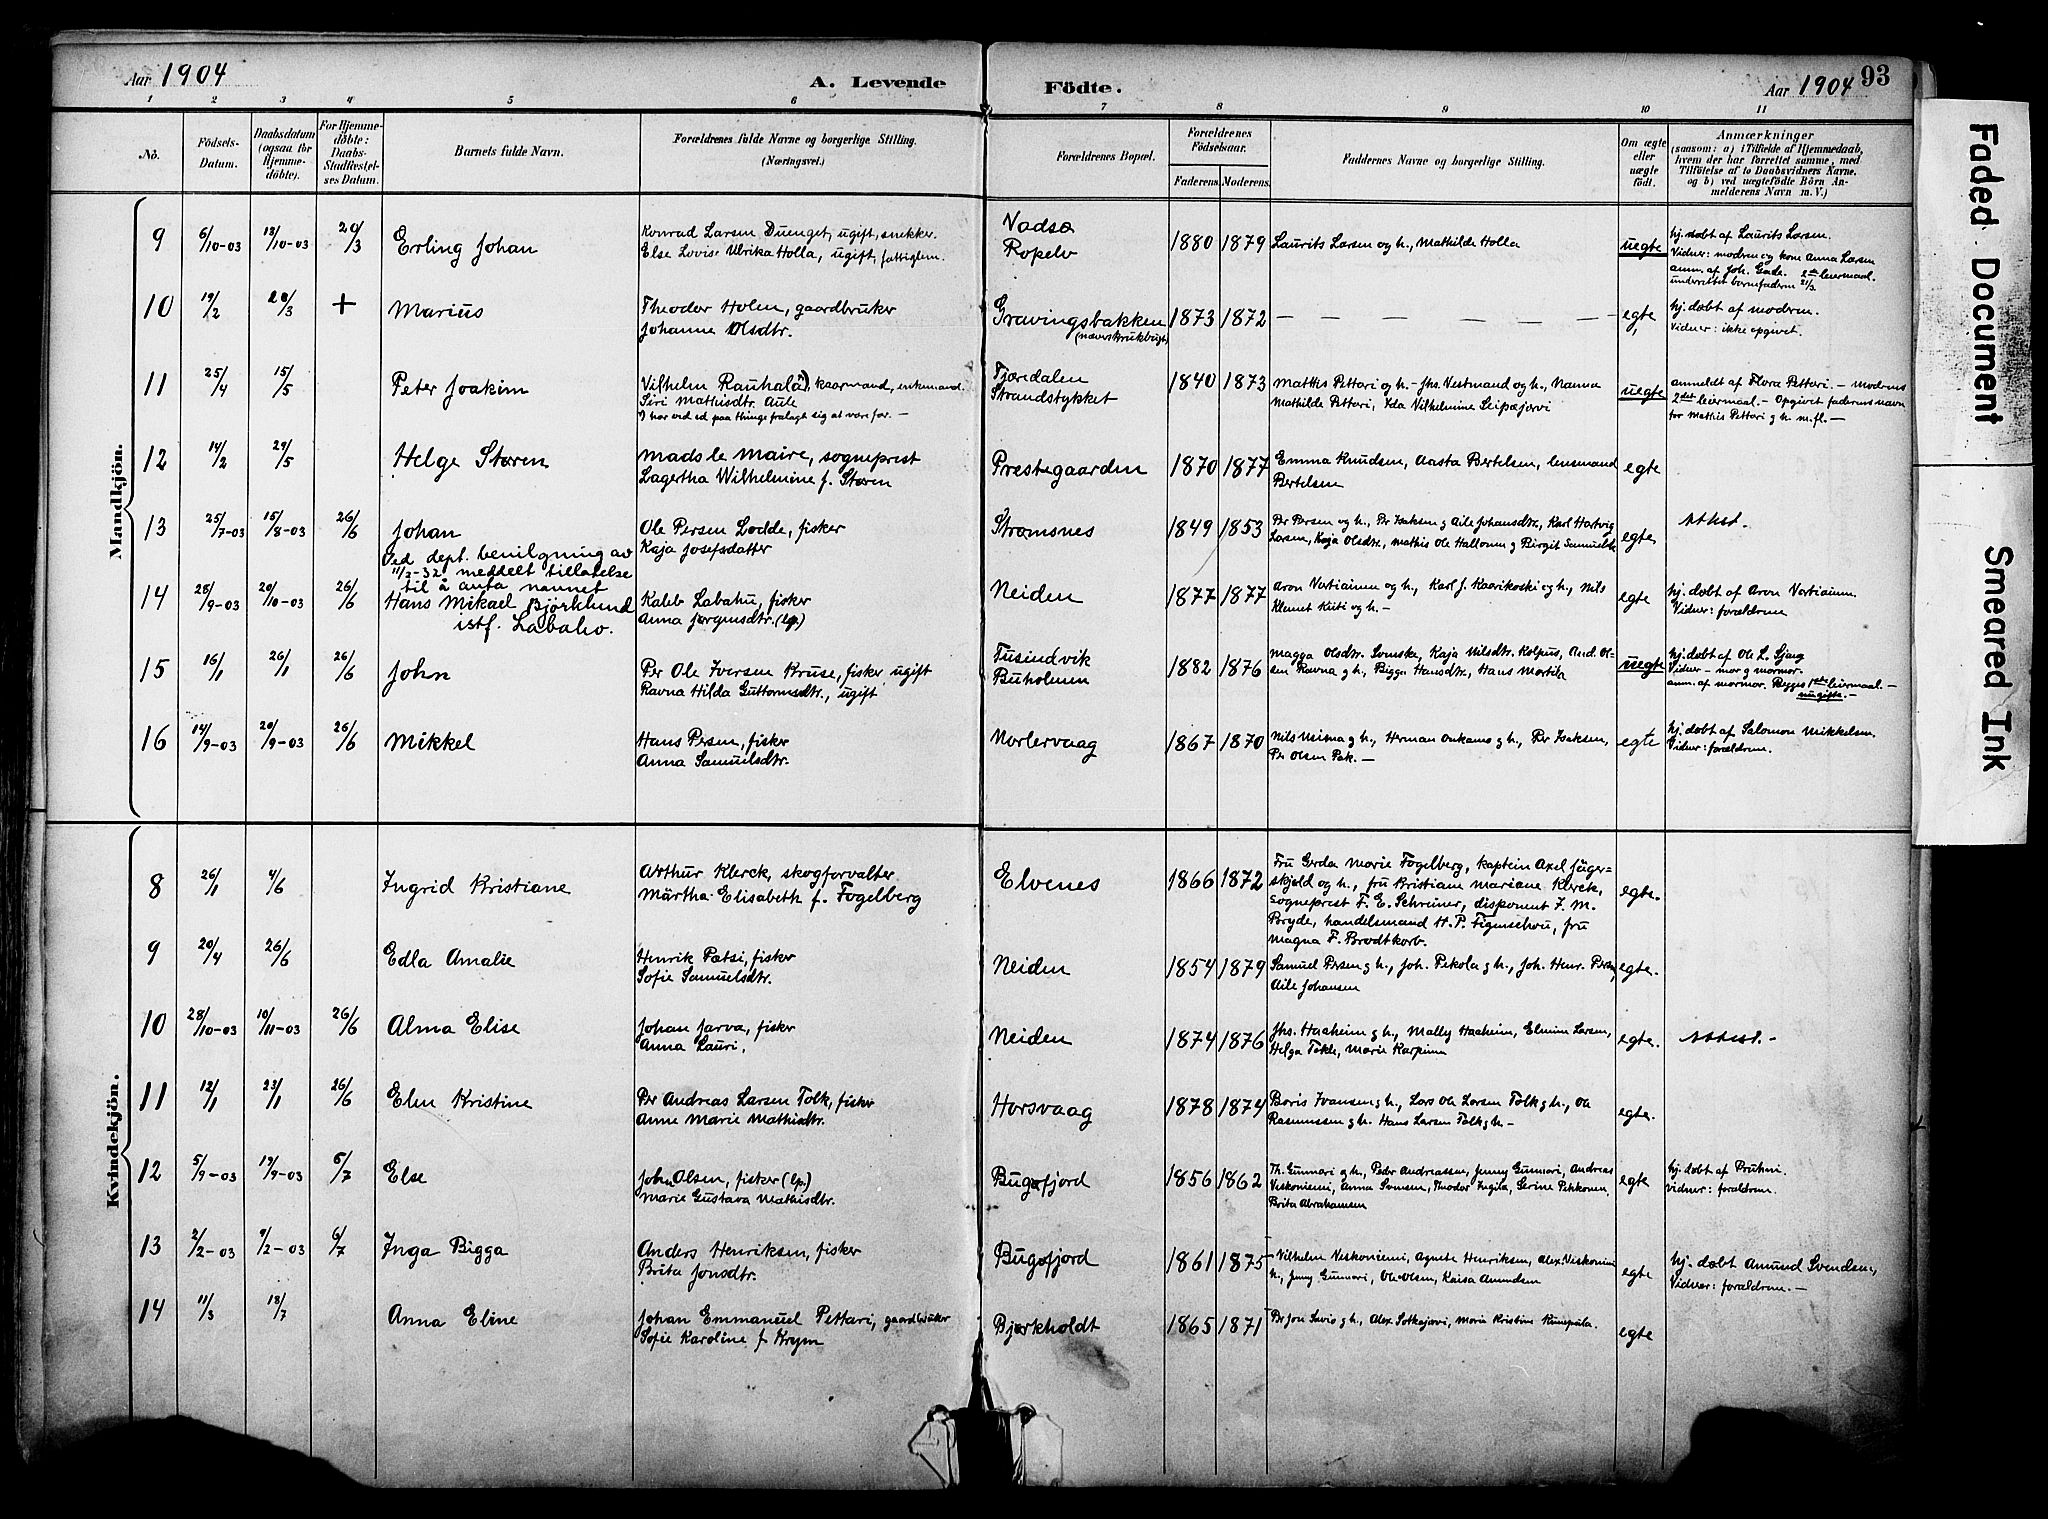 Aar 1904 A. Levende Födte. Aar 1904 93
1 2 3 4 5 6 7 8 9 10 11
No. Födsels-Datum. Daabsdatum (ogsaa for Hjemmedöbte). For Hjemmedöbte: Daabs-Stadfæstelses Datum. Barnets fulde Navn. Forældrenes fulde Navne og borgerlige Stilling. (Næringsvei.) Forældrenes Bopæl. Forældrenes Födselsaar. Faderens. Moderens. Faddernes Navne og borgerlige Stilling. Om ægte eller uægte födt. Anmærkninger (saasom: a) i Tilfælde af Hjemmedaab, hvem der har forrettet samme, med Tilföielse af to Daabsvidners Navne. og b) ved uægtefödte Börn Anmelderens Navn m. V.)
Mandkjön.
9 6/10-03 18/10-03 20/3 Erling Johan
Konrad Larsen Duenget, ugift, snekker.
Else Lovise Ulrika Holla, ugift, fattiglem.
Vadsø
Ropelv
1880 1879 Laurits Larsen og h., Mathilde Holla uegte
hj. døbt af Laurits Larsen.
Vidner: modren og kone Anna Larsen
anm. af Joh. Gade. 2det leiermaal.
underrettet barnefaderen 21/3.
10 19/2 20/3 + Marius
Theodor Holen, gaardbruker
Johanne Olsdtr.
Gravingsbakken
1873 1872 — — — — — — — egte
hj. døbt af modren.
Vidner: ikke opgivet.
11 25/4 15/5 Peter Joakim
Vilhelm Rauhala), kaarmand, enkemand.
Siri Mathisdtr. Aule
Fjøredalen
Strandstykket
1840 1873
Mathis Pettari og h. - Jhs. Vestmand og h., Nanna
Mathilde Pettari, Ida Vilhelmine Seipæjærvi
uegte
anmeldt af Flora Pettari. - modrens
2det leiermaal. - Opgivet faderens navn
for Mathis Pettari g h. m.fl. —
12 14/2 29/5 Helge Støren
Mads le Maire, sogneprest
Lagertha Wilhelmine f. Støren
Prestegaarden 1870 1877
Emma Knudsen, Aasta Bertelsen, lensmand
Bertelsen
egte
13 25/7-03 15/8-03 26/6 Johan
Ole Persen Lodde, fisker
Kaja Josefsdatter
Strømsnes 1849 1853
Per Persen og h., Per Isaksen g Aile Johansdtr., Karl Hartvig
Larsen, Kaja Olsdtr., Mathis Ole Hallonen g Birgit Samuelsdtr.
egte Attest.
Ved dept. bevilgning av
11/2-32 meddelt tillatelse
til å anta navnet
14 25/9-03 20/10-03 26/6 Hans Mikael Björklund
istf. Labaho.
Kaleb Labahu, fisker
Anna Jørgensdtr. (lp)
Neiden 1877 1877
Aron Vertiainen og h., Karl J. Kaarikoski og h., Nils
Klemet Kiiti og h. -
egte
hj. døbt af Aron Vertiainen.
Vidner: forældrene
15 16/1 26/1 26/6 John
Per Ole Iversen Kruse, fisker, ugift
Ravna Hilda Guttormsdtr., ugift
Tusindvik
Buholmen
1882 1876
Magga Olsdtr. Svenske, Kaja Nilsdtr. Kolpus, And. Ol-
sen Ravna g h., Bigga Hansdtr., Hans Mortda
uegte
hj. døbt af Ole L. Sjong
Vidner - mor g mormor.
anm. af mormor. Begges 1ste leiermaal. -
ugifte. -
16 14/9-03 20/9-03 26/6 Mikkel
Hans Persen, fisker
Anna Samuelsdtr.
Norlervaag 1867 1870
Nils Neima g h., Herman Onkamo g h., Per Isaksen,
Per Olsen Pak. —
egte
hj. døbt af Salomon Mikkelsen.
Vidner: forældrene.
Kvindekjön.
8 26/1 4/6 Ingrid Kristiane
Arthur Klerck, skogforvalter
Märtha Elisabeth f. Fogelberg
Elvenes 1866 1872
Fru Gerda Marie Fogelberg, kaptein Axel Jäger-
skjøld og h., fru Kristiane Mariane Klerck,
sogneprest F. E. Schreiner, disponent J. M.
Bryde, handelsmand H. P. Figenschou, fru
Magna F. Brodtkorb.
egte.
9 20/4 26/6 Edla Amalie
Henrik Pætsi, fisker
Sofie Samuelsdtr.
Neiden 1854 1879
Samuel Persen g h., Joh. Pekola g h., Joh. Henr. Persen,
Aile Johansen
egte.
10 28/10-03 10/11-03 26/6 Alma Elise
Johan Jarva, fisker
Anna Lauri.
Neiden 1874 1876
Jhs. Haaheim g h., Mally Haaheim, Elmine Larsen,
Helga Tekle, Marie Karpinen
egte. Attest. -
11 12/1 23/1 26/6 Elen Kristine
Per Andreas Larsen Tolk, fisker
Anne Marie Mathisdtr.
Horsvaag 1878 1874
Boris Ivansen g h., Lars Ole Larsen Tolk g h., Ole
Rasmussen g h. Hans Larsen Tolk g h. -
egte.
12 5/9-03 19/9-03 6/7 Else
John Olsen, fisker (lp.)
Marie Gustava Mathisdtr.
Bugøfjord 1856 1862
Th. Gunnari og h., Peder Andreassen, Jenny Gunnari, Andreas
Veskoniemi, Anna Svensen, Theodor Ingila, Serine Pekkonen,
Brita Abrahamsen
egte
hj. døbt af Pruhni
Vidner: forældrene.
13 2/2-03 9/2-03 6/7 Inga Bigga
Anders Henriksen, fisker
Brita Jonsdtr.
Bugøfjord 1861 1875
Vilhelm Veskoniemi, Agnete Henriksen, Alex. Veskoniemi
h., Jenny Gunnari, Ole Olsen, Kaisa Amundsen
egte
hj. døbt Amund Svendsen,
Vidner: forældrene. -
14 11/3 18/7 Anna Eline
Johan Emmanuel Pettari, gaardbruker
Sofie Karoline f Krym
Bjørkholdt 1865 1871
Per Jon Savio g h., Alex. Sotkajærvi, Maria Kristine Kumpula.
egte
Faded Document
Smeared Ink